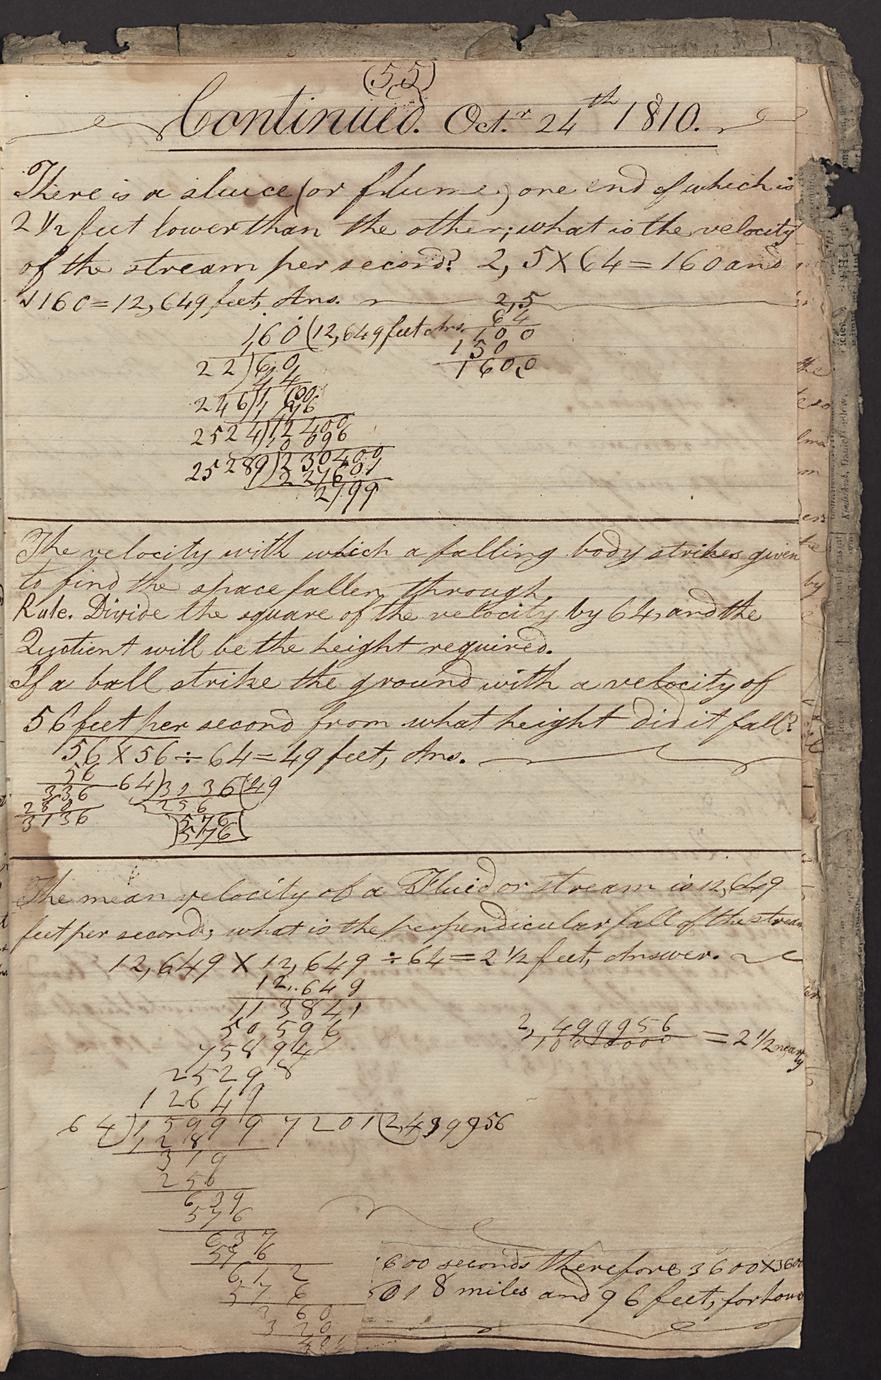 (55)
Continued. Oct.r 24th 1810.
There is a sluice (or flume) one end of which is
2 1/2 feet lower than the other; what is the velocity
of the stream per second? 2,5 X 64 = 160 and
√160 = 12,649 feet, Ans.
2,5
64
100
150
160,0
160 (12,649 feet Ans.
22) 60
44
246) 1600
1476
2524) 12400
10096
25289) 230400
227601
2799
The velocity with which a falling body strikes given
to find the space fallen through.
Rule. Divide the square of the velocity by 64, and the
Quotient will be the height required.
If a ball strike the ground with a velocity of
56 feet per second from what height did it fall?
56 X 56 ÷ 64 = 49 feet, Ans.
56
336
280
3136
64) 3136 (49
256
576
576
The mean velocity of a Fluid or stream is 12,649
feet per second; what is the perpendicular fall of the stream
12,649 X 12,649 ÷ 64 = 2 1/2 feet, Answer.
12,649
113841
50596
75894
25298
12649
2,499956
1000000 = 2 1/2 nearly
64) 159997201 (2,499956
128
319
256
639
576
637
576
612
576
360
320
600 seconds therefore 3600 X 3600
018 miles and 96 feet, for